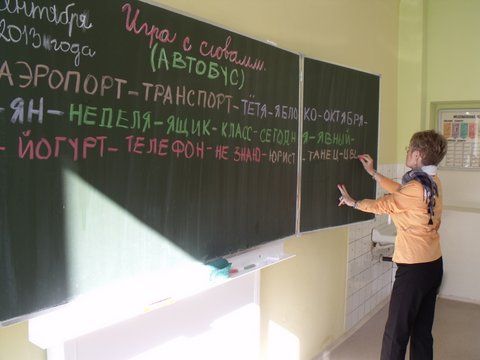 сентября
2013 года
Игра с словами.
(АВТОБУС)
АЭРОПОРТ-ТРАНСПОРТ-ТЁТЯ-ЯБЛОКО-ОКТЯБРЯ-
-ЯН-НЕДЕЛЯ-ЯЩИК-КЛАСС-СЕГОДНЯ-ЯВНИЙ-
- ЙОГУРТ-ТЕЛЕФОН-НЕ ЗНАЮ-ЮРИСТ-ТАНЕЦ-ЦВЕ